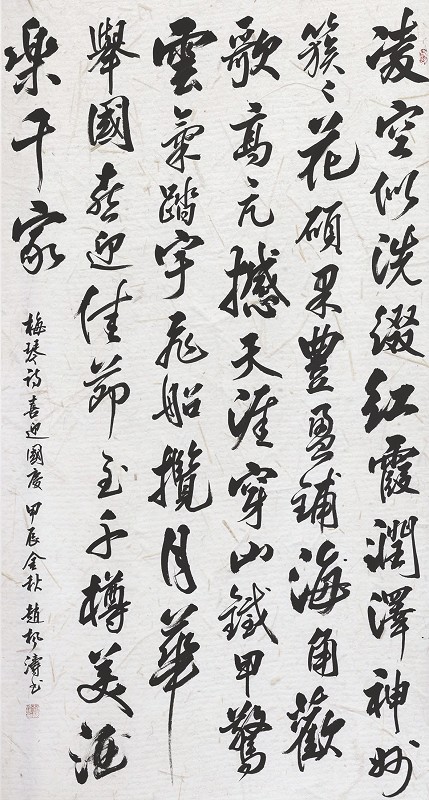 凌空似洗綴紅霞潤澤神州
簇〻花碩果豐盈鋪海角歡
歌高亢撼天涯穿山鐵甲驚
雲氣踏宇飛船攬月華
舉國喜迎佳節至千樽美酒
樂千家
梅琴詩喜迎國慶 甲辰金秋 趙松濤書